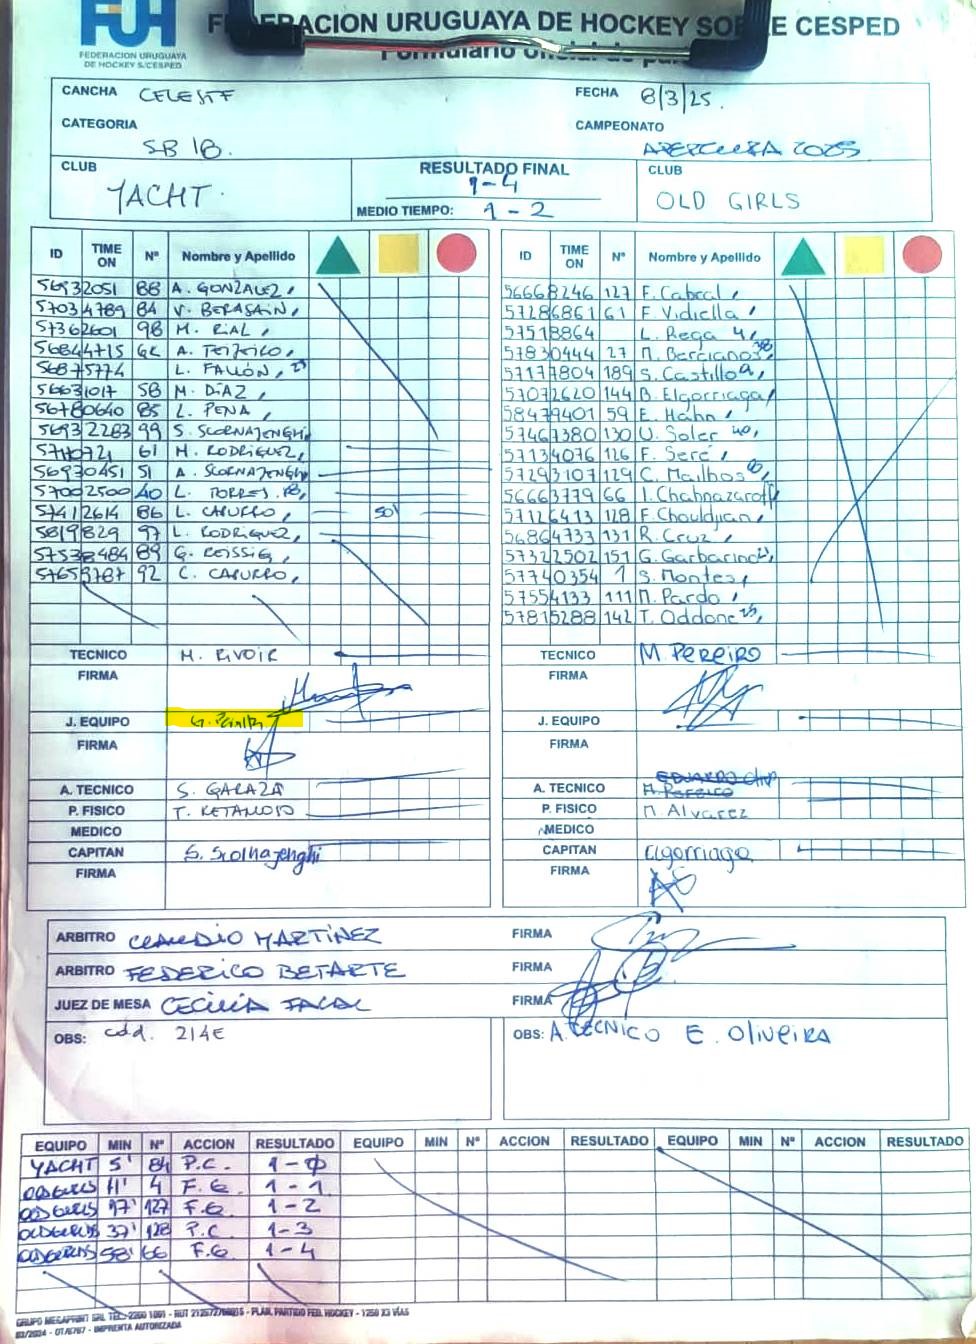 FUH
FEDERACION URUGUAYA
DE HOCKEY S/CESPED
FEDERACION URUGUAYA DE HOCKEY SOBRE CESPED
Formulario oficial de
CANCHA CELESTE
FECHA 8/3/25.
CATEGORIA SB 18.
CAMPEONATO APERTURA 2025
CLUB YACHT.
RESULTADO FINAL 1-4
MEDIO TIEMPO: 1-2
CLUB OLD GIRLS
ID TIME ON Nº Nombre y Apellido
56932051 88 A. GONZALEZ,
57034789 84 V. BERASAIN,
57362601 98 M. RIAL,
56844715 A. TEIJEIRO,
56875774 L. FALLÓN,
56631017 58 M. DÍAZ,
56780640 85 L. PENA,
56932283 99 S. SCORNAJENGHI
5740721 61 M. RODRIGUEZ,
56930451 51 A. SCORNAJENGHI
57002500 40 L. TORRES.
57412614 86 L. CAPURRO, 50'
5819829 97 L. RODRIGUEZ,
57538484 89 G. REISSIG,
57653787 92 C. CAPURRO,
TECNICO M. RIVOIR
FIRMA
J. EQUIPO
FIRMA
A. TECNICO S. GARAZA
P. FISICO T. RETAMOSO
MEDICO
CAPITAN S. Scornajenghi
FIRMA
ID TIME ON Nº Nombre y Apellido
56668246 127 F. Cabral,
57286861 61 F. Vidiella,
57518864 L. Rega 4,
57830444 27 M. Bercianos 38,
57177804 189 S. Castillo,
57072620 144 B. Elgorriaga,
58479401 59 E. Hahn,
57467380 130 U. Soler 40,
57134076 126 F. Seré,
57293107 129 C. Mailhos,
56663779 66 I. Chahnazaroff,
57126413 128 F. Chouldjian,
56864733 131 R. Cruz,
57322502 151 G. Garbarino,
57740354 1 S. Montes,
57554133 111 M. Pardo,
57815288 142 T. Oddone 25,
TECNICO M. PEREIRO
FIRMA
J. EQUIPO
FIRMA
A. TECNICO
P. FISICO M. Alvarez
MEDICO
CAPITAN Elgorriaga
FIRMA
ARBITRO CLAUDIO MARTÍNEZ FIRMA
ARBITRO FEDERICO BETARTE FIRMA
JUEZ DE MESA CECILIA FACAL FIRMA
OBS: cdd. 214E
OBS: A. TECNICO E. OLIVEIRA
EQUIPO MIN Nº ACCION RESULTADO EQUIPO MIN Nº ACCION RESULTADO EQUIPO MIN Nº ACCION RESULTADO
YACHT 5' 84 P.C. 1-0
OLD GIRLS 11' 4 F.G. 1-1
OLD GIRLS 17' 127 F.G. 1-2
OLD GIRLS 37' 128 P.C 1-3
OLD GIRLS 58' 66 F.G 1-4
GRUPO MEGAPRINT SRL TEL.:2200 1001 - RUT - PLAN. PARTIDO FED. HOCKEY - 1250 X3 VÍAS
03/2024 - IMPRENTA AUTORIZADA